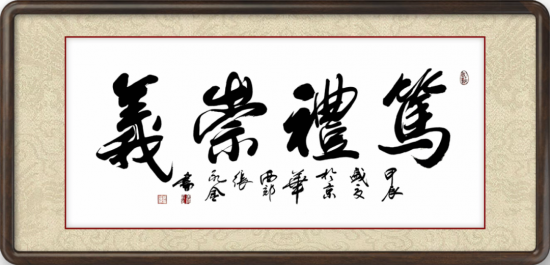 篤禮崇義
甲辰
盛夏
於京
華
西郊
張
永金
書